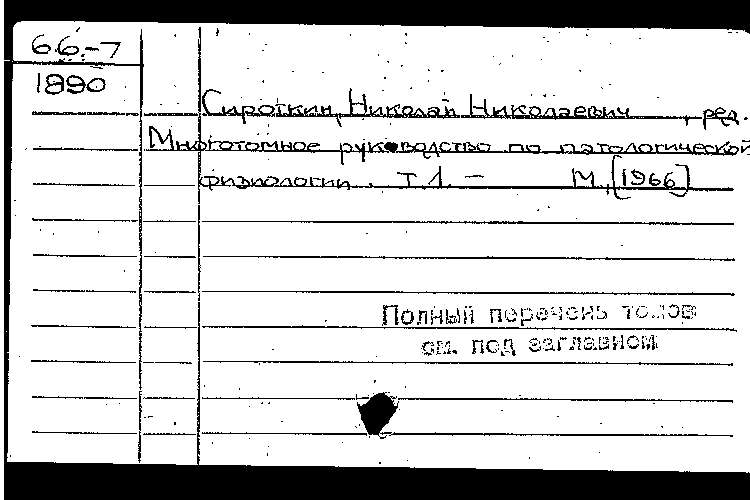 66-7
1890
Сироткин, Николай Николаевич, ред.
Многотомное руководство по патологической
физиологии. Т.1. – М., [1966]
Полный перечень томов
см. под заглавием